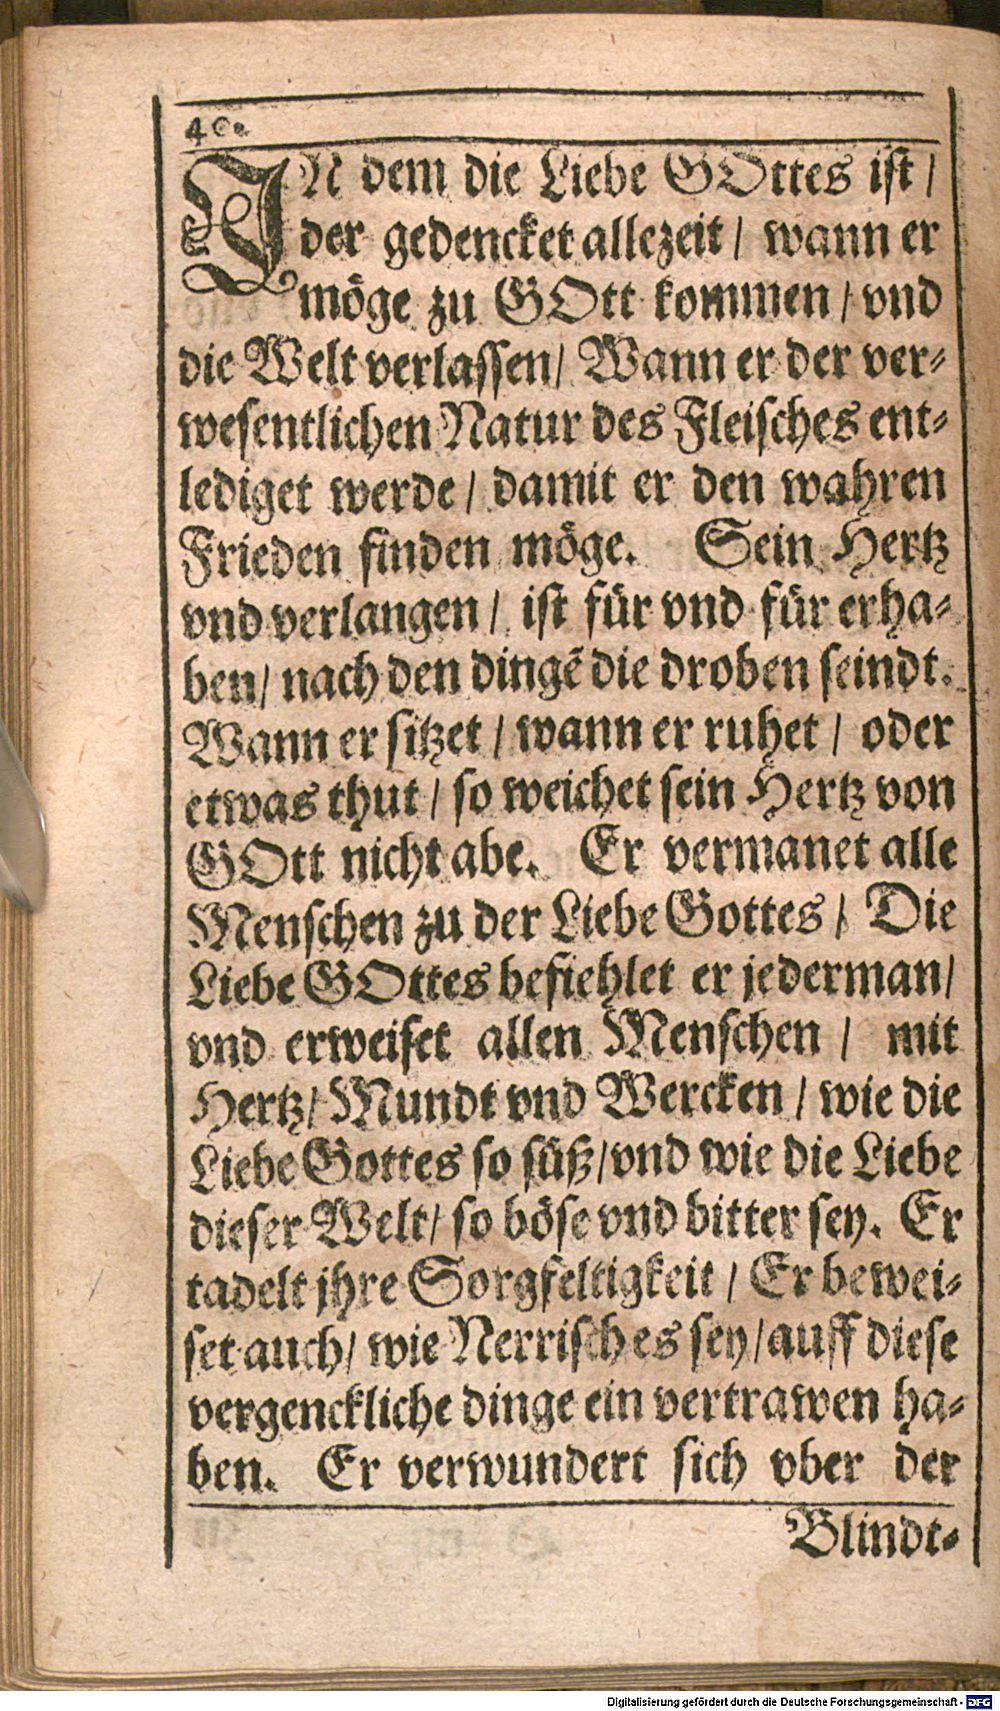 40.
IN dem die Liebe GOttes ist /
der gedencket allezeit / wann er
möge zu GOtt kommen / vnd
die Welt verlassen / Wann er der ver-
wesentlichen Natur des Fleisches ent-
lediget werde / damit er den wahren
Frieden finden möge. Sein Hertz
vnd verlangen / ist für vnd für erha-
ben / nach den dingē die droben seindt.
Wann er sitzet / wann er ruhet / oder
etwas thut / so weichet sein Hertz von
GOtt nicht abe. Er vermanet alle
Menschen zu der Liebe Gottes / Die
Liebe GOttes befiehlet er jederman /
vnd erweiset allen Menschen / mit
Hertz / Mundt vnd Wercken / wie die
Liebe Gottes so süß / vnd wie die Liebe
dieser Welt / so böse vnd bitter sey. Er
tadelt jhre Sorgfeltigkeit / Er bewei-
set auch / wie Nerrisch es sey / auff diese
vergenckliche dinge ein vertrawen ha-
ben. Er verwundert sich vber der
Blindt-
Digitalisierung gefördert durch die Deutsche Forschungsgemeinschaft - DFG